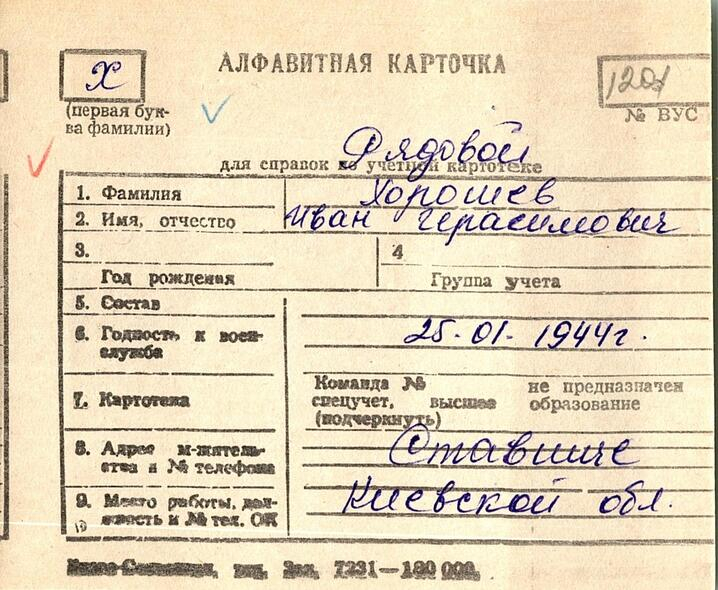 Х
АЛФАВИТНАЯ КАРТОЧКА
1201
(первая бук-
ва фамилии)
№ ВУС
Рядовой
для справок по учетной картотеке
1. Фамилия Хорошев
2. Имя, отчество Иван Герасимович
3. 4
Год рождения Группа учета
5. Состав
6. Годность к воен-
службе
25.01.1944г.
7. Картотека
Команда № не предназначен
спецучет, высшее образование
(подчеркнуть)
8. Адрес м-житель-
ства и № телефона
Ставище
9. Место работы, дол-
жность и № тел. ОК
Киевской обл.
19
тип. Зак. 7231—100 000.